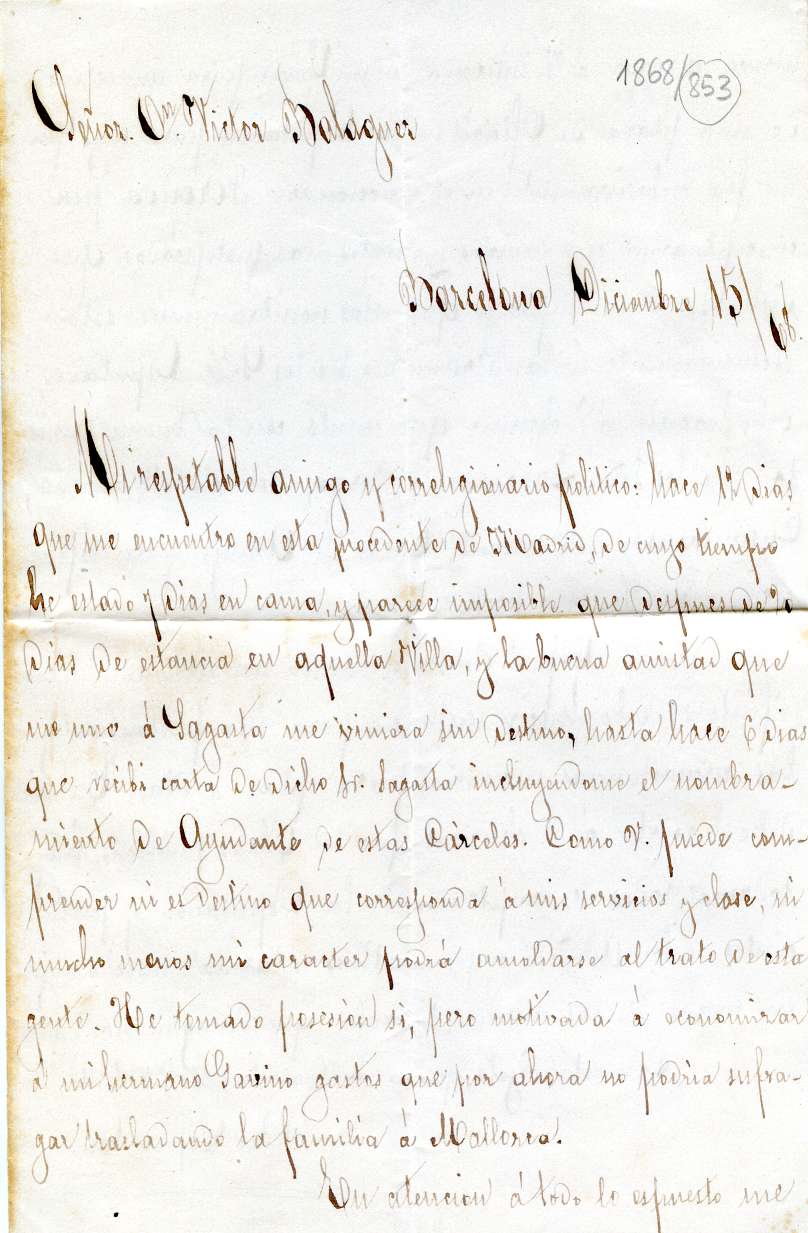 1868/853
Señor. Dn. Victor Balaguer
Barcelona Diciembre 15/68.
Mi respetable amigo y correligionario politico: hace 12 dias
que me encuentro en esta procedente de Madrid, de cuyo tiempo
he estado 7 dias en cama, y parece imposible que despues de
dias de estancia en aquella Villa, y la buena amistad que
me une á Sagasta me viniera sin destino, hasta hace 6 dias
que recibi carta de dicho Sr. Sagasta incluyendome el nombra-
miento de Ayudante de estas Cárceles. Como V. puede com-
prender ni es destino que corresponda á mis servicios y clase, ni
mucho menos mi caracter podrá amoldarse al trato de esta
gente. He tomado posesión si, pero motivada á economizar
á mi hermano Gavino gastos que por ahora no podria sufra-
gar trasladando la familia á Mallorca.
En atencion á todo lo espuesto me